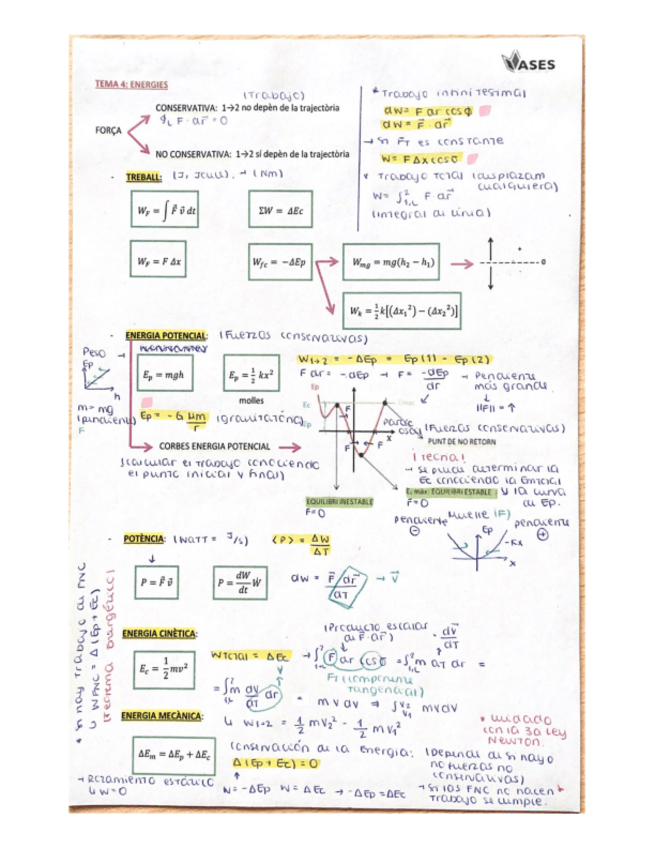 VASES
TEMA 4: ENERGIES
(Trabajo)
CONSERVATIVA: 1→2 no depèn de la trajectòria
FORÇA
NO CONSERVATIVA: 1→2 sí depèn de la trajectòria
* Trabajo infinitesimal
dW = F dr cosϕ
dW = F⃗ · dr⃗
es constante
W = F Δx cosϕ
* Trabajo total
cualquiera)
W = ∫₁,L² F dr⃗
(integral de línea)
- TREBALL: (J, Joule). → (Nm)
W_F = ∫ F⃗ v⃗ dt
ΣW = ΔEc
W_F = F Δx
W_fc = −ΔEp
W_mg = mg(h₂ − h₁)
0
W_k = ½k[(Δx₁²) − (Δx₂²)]
- ENERGIA POTENCIAL: (Fuerzas conservativas)
Peso
Ep
h
E_p = mgh
E_p = ½ kx²
molles
W₁→₂ = −ΔEp = Ep(1) − Ep(2)
F dr = −dEp → F = −dEp/dr → Pendiente
más grande
↓
||F|| = ↑
m = mg
(pendiente)
F
Ep = −G Mm/r (gravitatoria)
Ep
Ec
Ep
F
F
F
x
(Fuerzas conservativas)
PUNT DE NO RETORN
CORBES ENERGIA POTENCIAL
(calcular el trabajo conociendo
el punto inicial y final)
(tecna!
→ se puede determinar la
Ec conociendo la Einicial
y la curva
de Ep.
EQUILIBRI INESTABLE
F=0
E. màx: EQUILIBRI ESTABLE
F=0
pendiente
⊖
Muelle (F)
pendiente
⊕
Ep
−Kx
x
- POTÈNCIA: (WATT = J/s) <P> = ΔW/ΔT
P = F⃗ v⃗
P = dW/dt Ẇ
dW = F⃗ dr⃗/dT → v⃗
* Si hay trabajo de FNC
↳ WFNC = Δ(Ep + Ec)
(teorema energético)
ENERGIA CINÈTICA:
E_c = ½mv²
(Producto escalar
de F·dr)
dv⃗/dT
WTotal = ΔEc → ∫₁,L² F dr cosϕ = ∫₁,L² m dT dr =
FT (componente
tangencial)
= ∫₁,L² m dv/dT dr = m v dv ⇒ ∫v₁^v₂ mvdv
ENERGIA MECÀNICA:
↳ W₁→₂ = ½ mv₂² − ½ mv₁²
* cuidado
con la 3a ley
Newton.
ΔE_m = ΔE_p + ΔE_c
Conservación de la energia: (Depende de si hay o
no fuerzas no
conservativas)
Δ(Ep + Ec) = 0
→ Rozamiento estático
↳ W=0
W = −ΔEp W = ΔEc → −ΔEp = ΔEc
→ Si las FNC no hacen
trabajo se cumple.